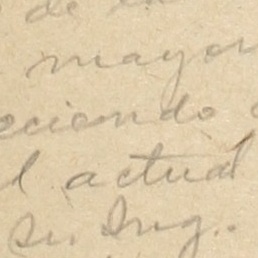 de la
mayor
eciendo
l actual
su Ing..